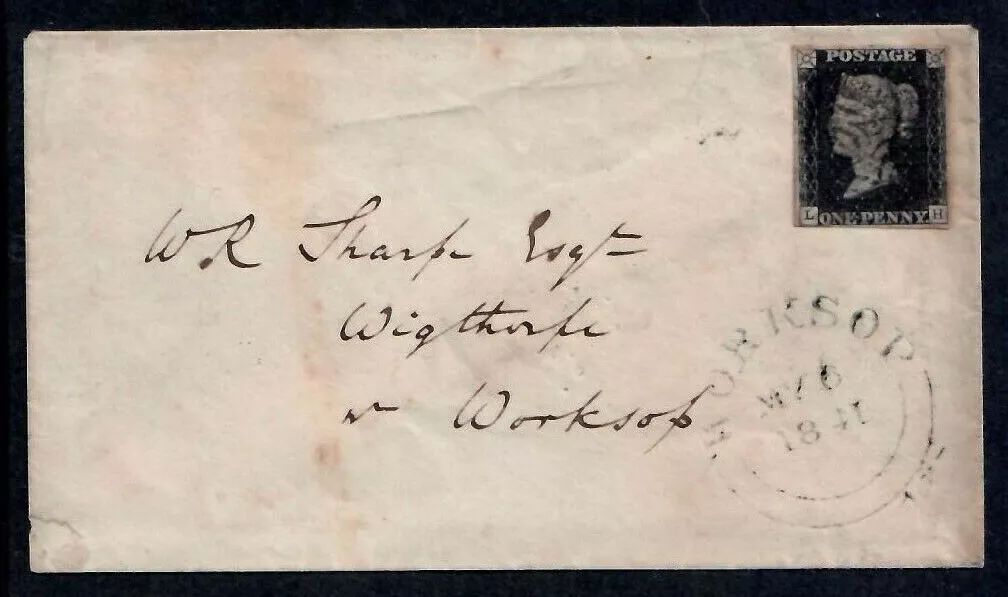 POSTAGE
L ONE PENNY H
W R Sharpe Esqr
Wigthorpe
nr Worksop
WORKSOP
MY 6
1841